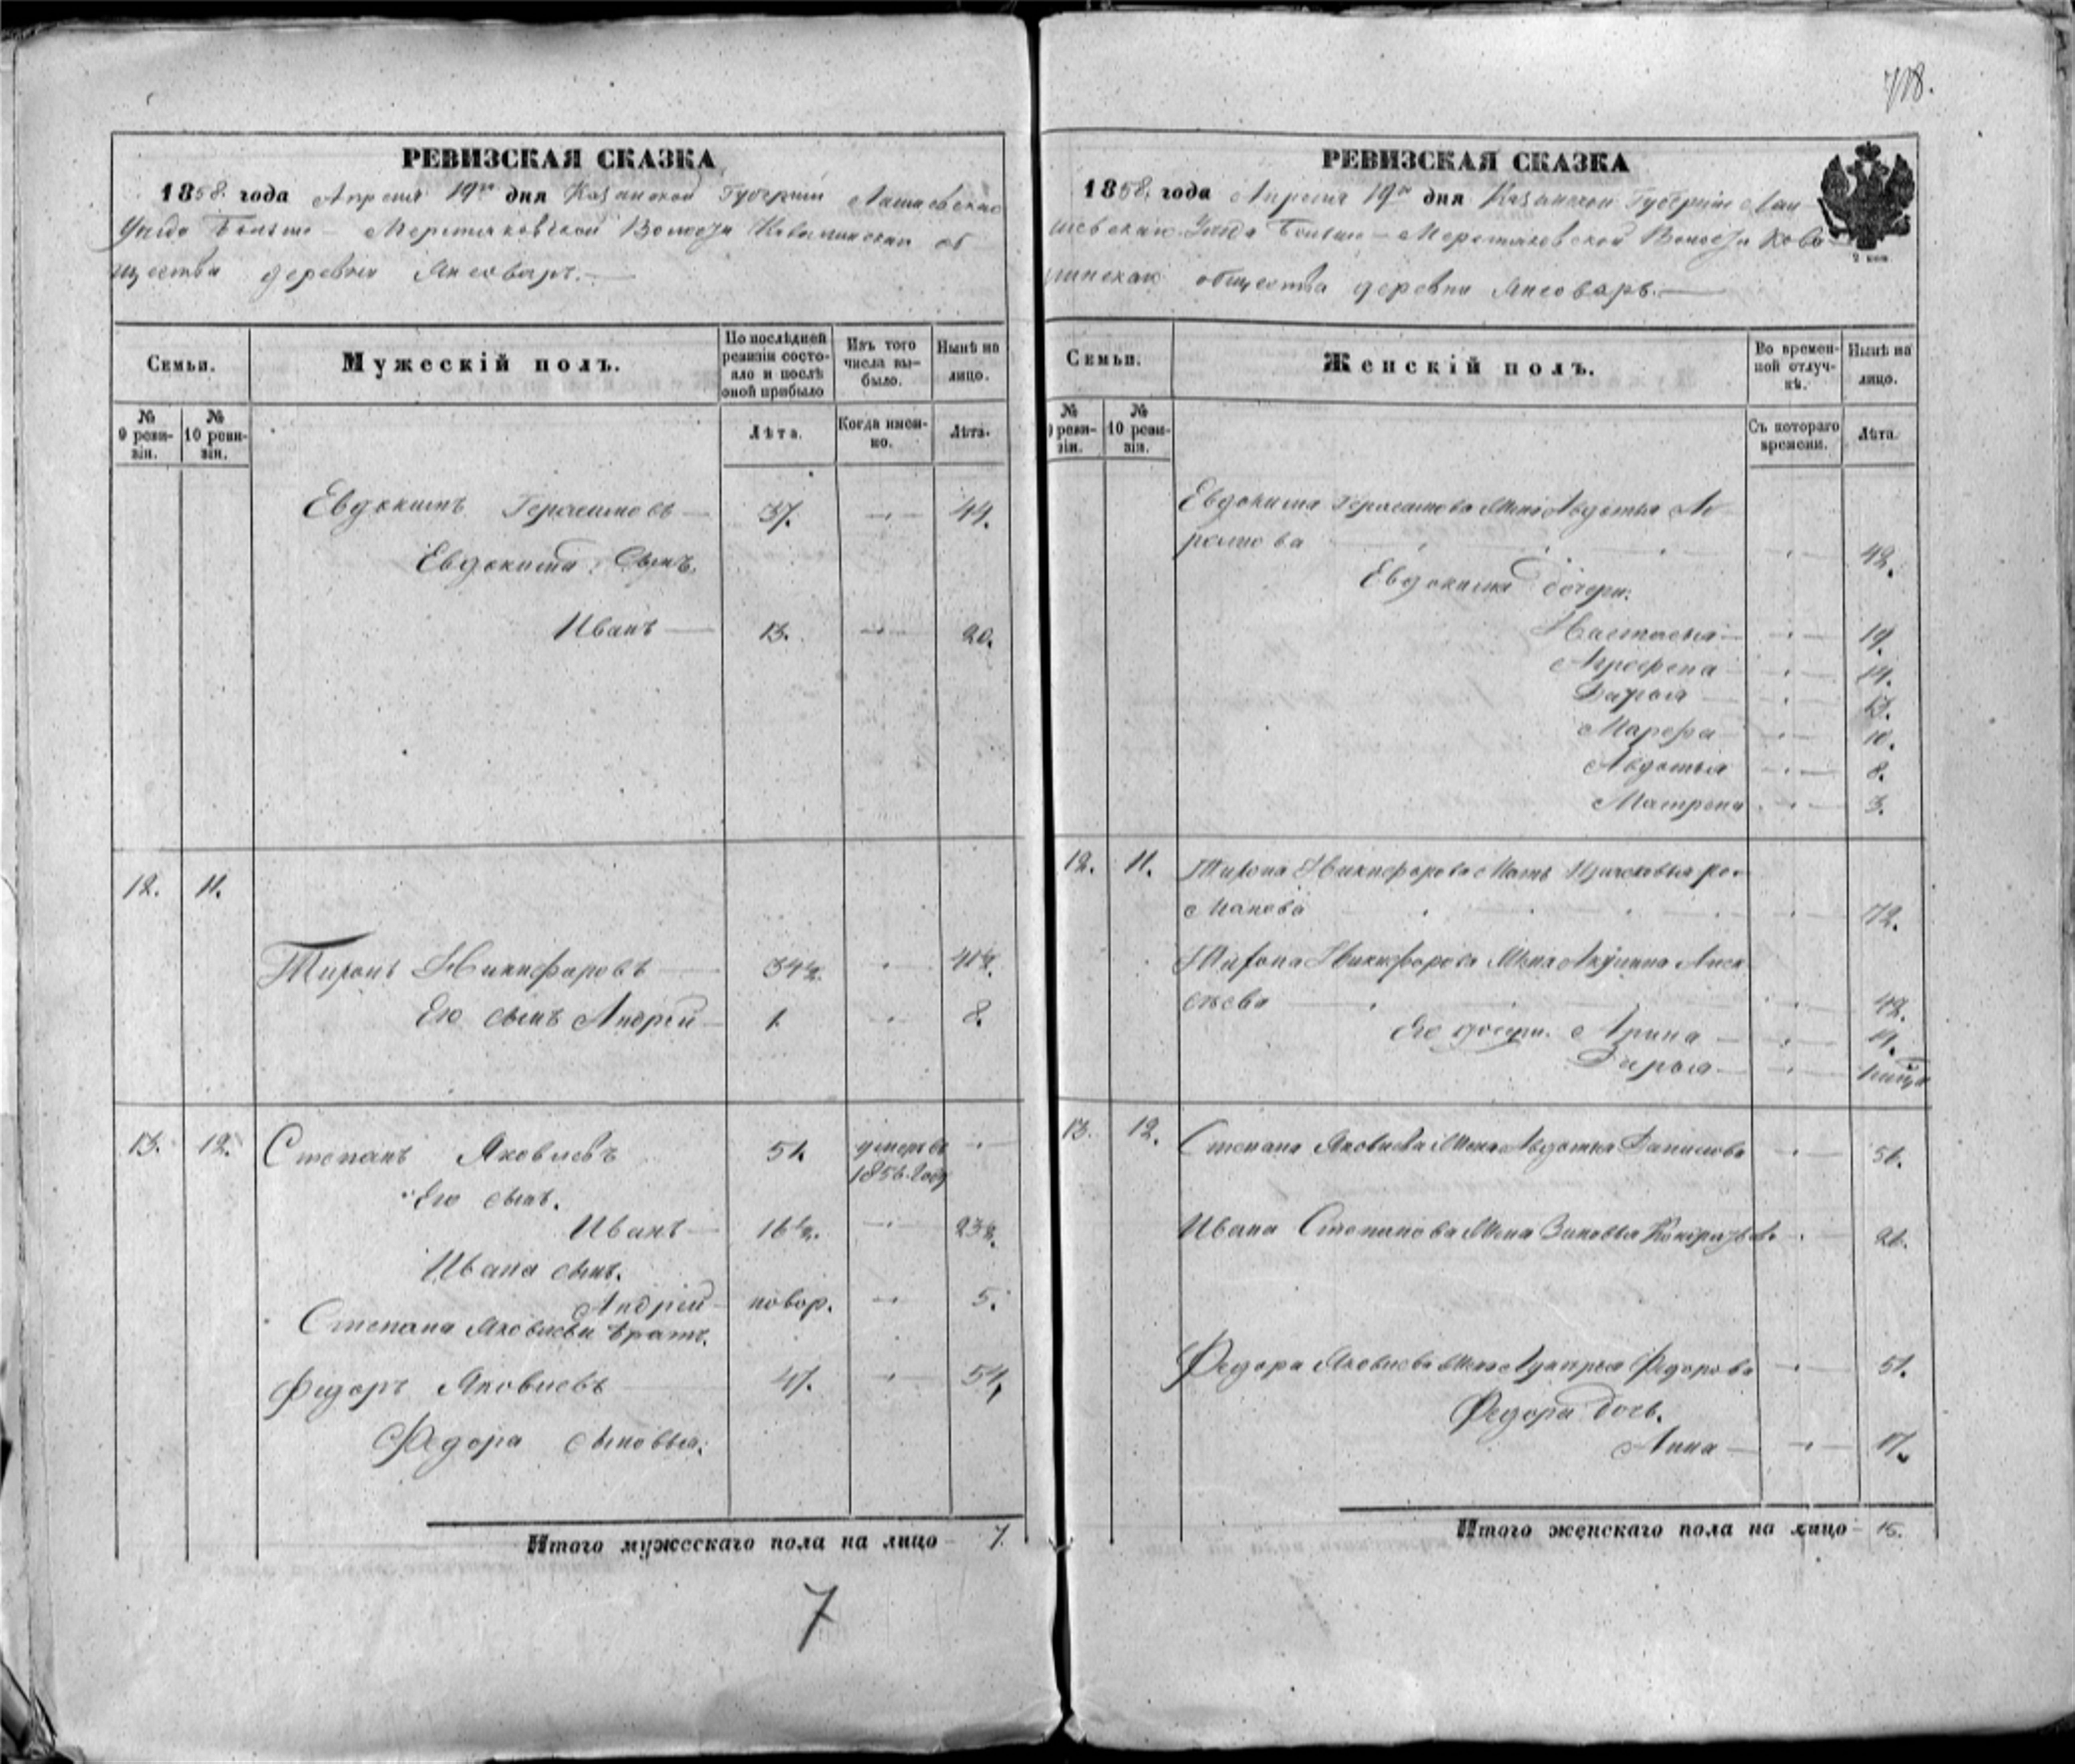 718.
РЕВИЗСКАЯ СКАЗКА
1858 года Апреля 19го дня Казанской Губернии Лаишевскаго
Уезда Больше-Меретяковской Волости Ковалинскаго об
щества деревни Янсоваръ.
Семьи.
Мужескій полъ.
По послѣдней ревизіи состояло и послѣ оной прибыло
Изъ того числа выбыло.
Нынѣ на лицо.
№ 9 ревизіи.
№ 10 ревизіи.
Лѣта.
Когда именно.
Лѣта.
Евдокимъ Герасимовъ 37. 44.
Евдокима Сынъ.
Иванъ 13. 20.
12. 11.
Никифоровъ 34½. 41½.
Его сынъ Андрей 1. 8.
13. 12. Степанъ Яковлевъ 51. умеръ въ
1856 году
Его сынъ.
Иванъ 16½. 23½.
Ивана сынъ.
Андрей новор. 5.
Степана Яковлева братъ.
Федоръ Яковлевъ 47. 54.
Федора сыновья:
Итого мужескаго пола на лицо 7.
7
РЕВИЗСКАЯ СКАЗКА
1858 года Апреля 19го дня Казанской Губернии Лаи
шевскаго Уезда Больше-Меретяковской Волости Кова
линскаго общества деревни Янсоваръ.
2 коп
Семьи.
Женскій полъ.
Во временной отлучкѣ.
Нынѣ на лицо.
№ 9 ревизіи.
№ 10 ревизіи.
Съ котораго времени.
Лѣта.
Евдокима Герасимова жена Авдотья
42.
Евдокима дочери.
Настасья 19.
Аграфена 14.
Дарья 13.
Марфа 10.
Авдотья 8.
Матрена 3.
12. 11. Никифорова Мать Ро
манова 72.
Никифорова Жена Акулина Алек
сѣева 42.
Его дочери. Арина 11.
Дарья
13. 12. Степана Яковлева Жена Авдотья Данилова 51.
Ивана Степанова Жена Зиновья 21.
Федора Яковлева жена Федорова 51.
Федора дочь.
Анна 17.
Итого женскаго пола на лицо 15.